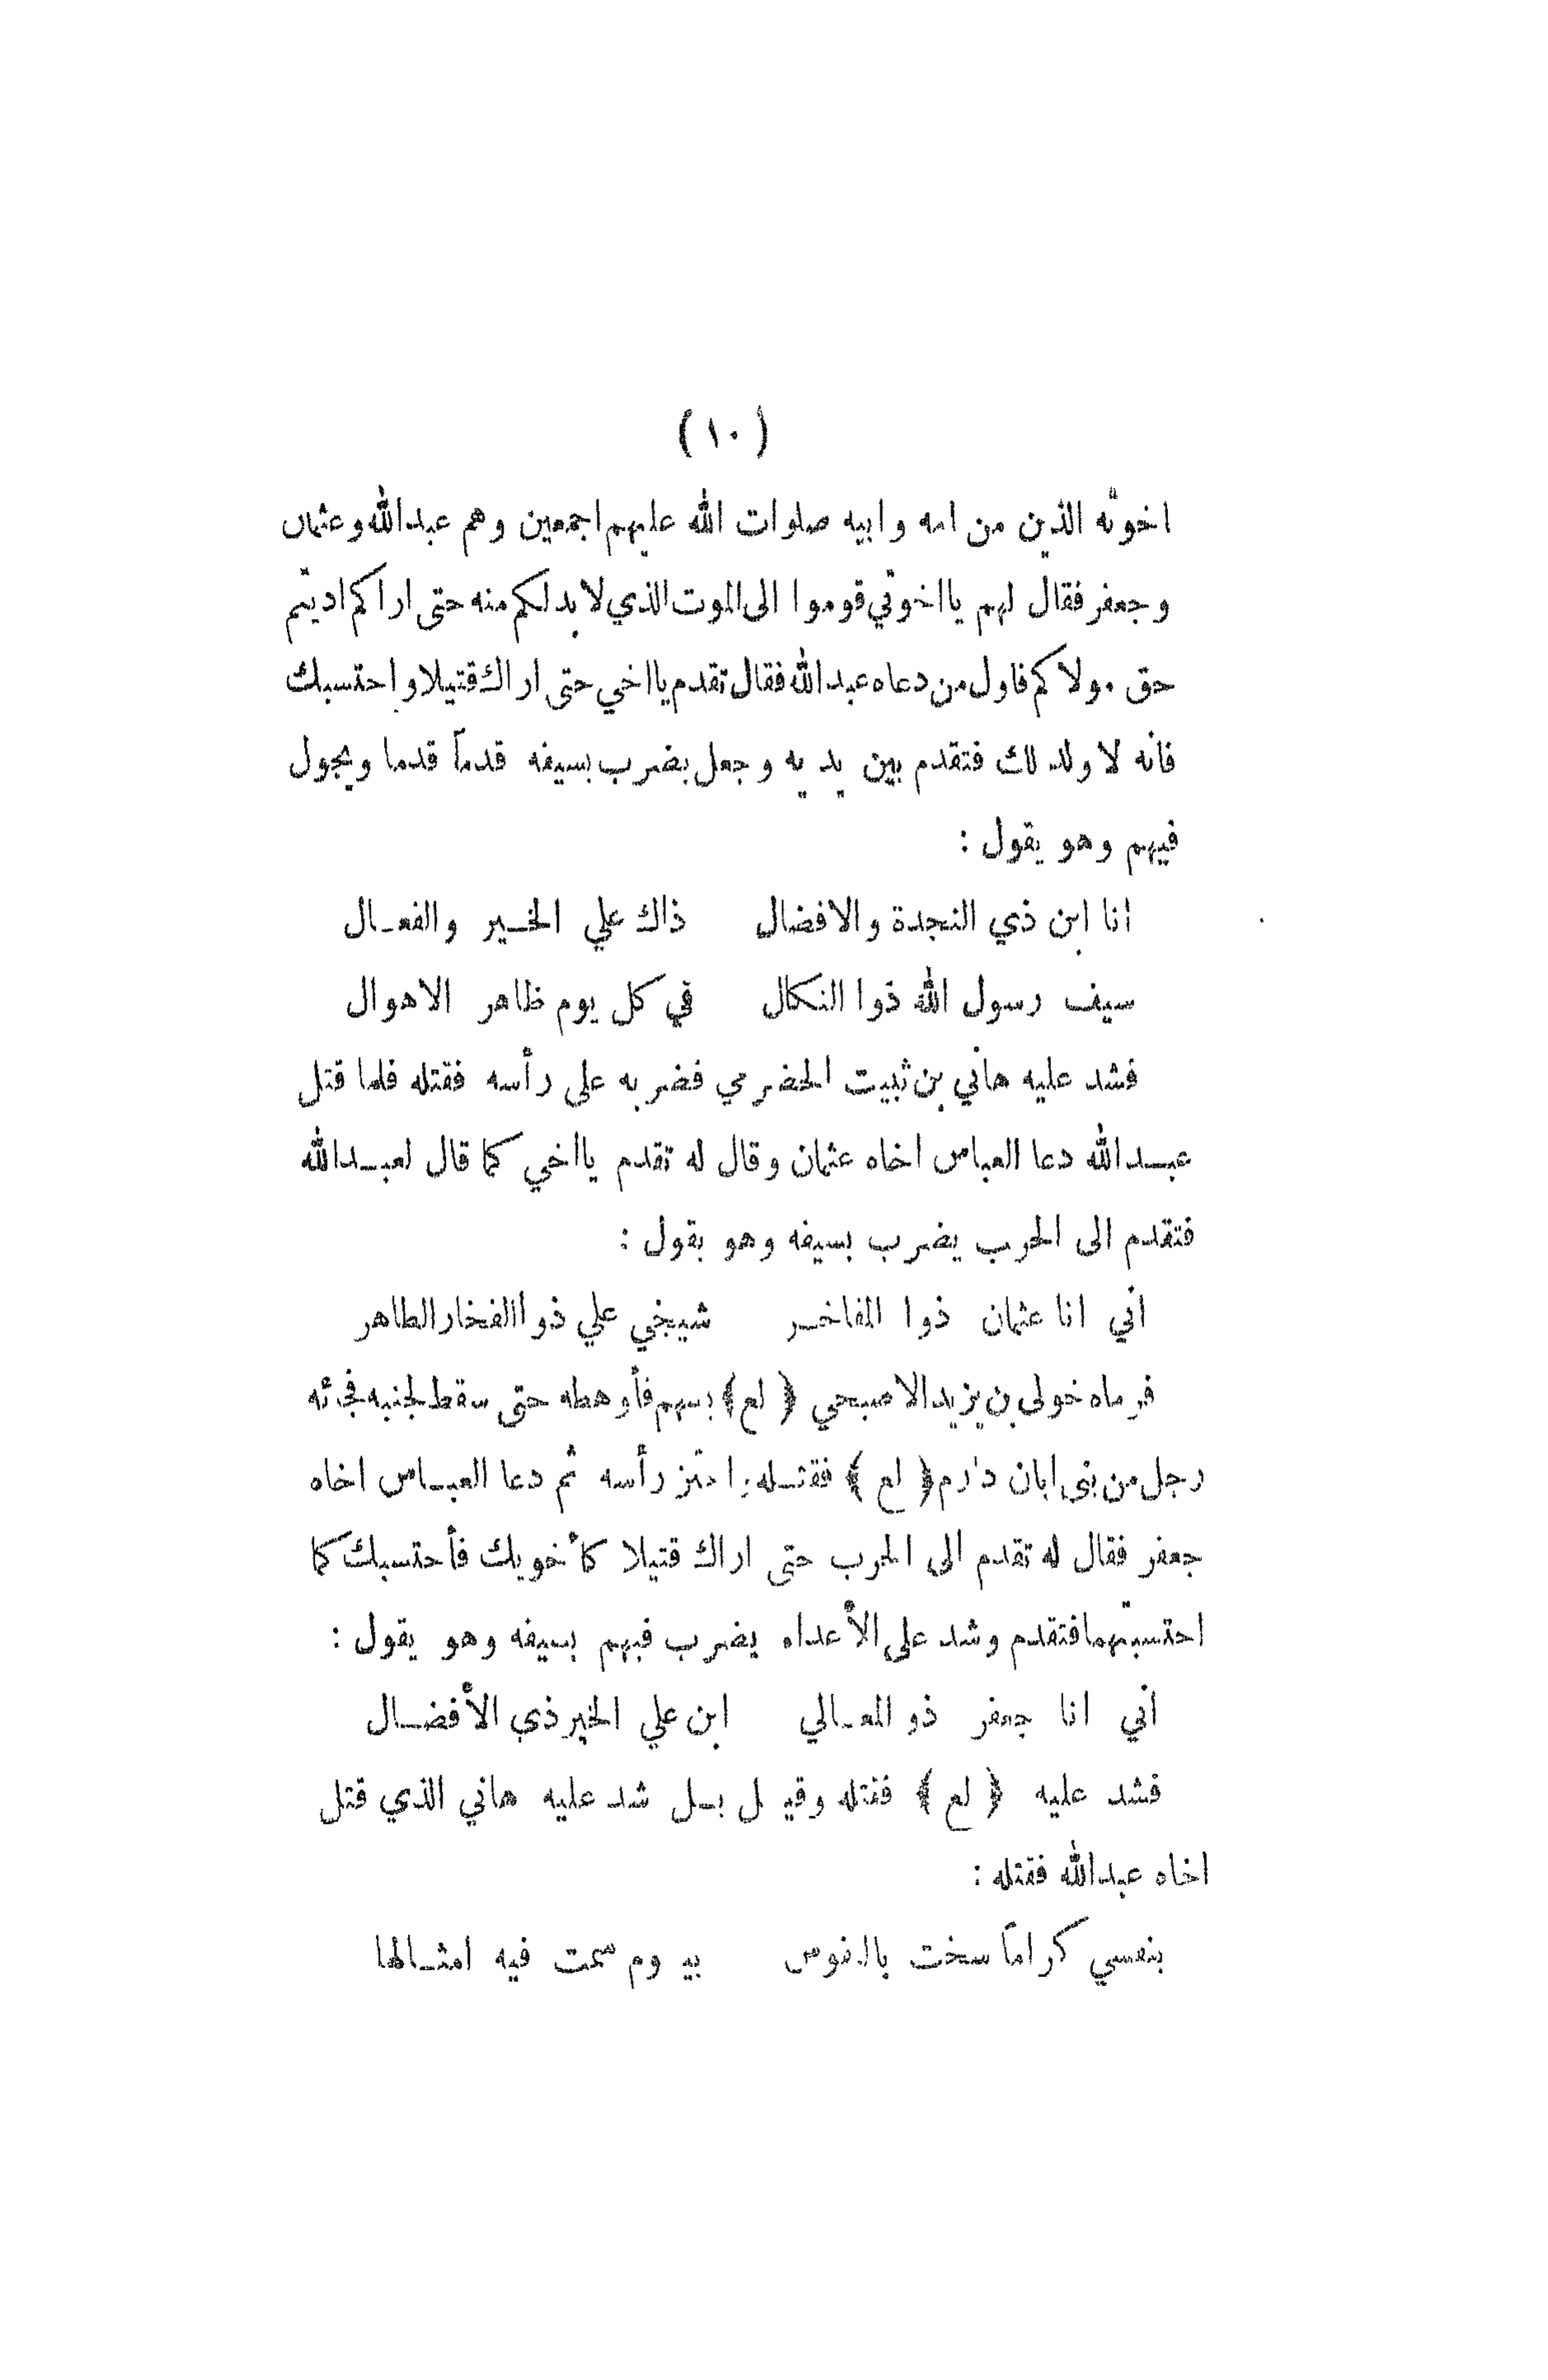 ( ١٠ )
اخوته الذين من امه وابيه صلوات الله عليهم اجمعين وهم عبدالله وعثمان
وجعفر فقال لهم يااخوتي قوموا الى الموت الذي لابد لكم منه حتى اراكم اديتم
حق مولاكم فاول من دعاه عبدالله فقال تقدم يااخي حتى اراك قتيلا واحتسبك
فانه لا ولد لك فتقدم بين يديه وجعل يضرب بسيفه قدماً قدما ويجول
فيهم وهو يقول :
انا ابن ذي النجدة والافضال ذاك علي الخير والفعال
سيف رسول الله ذوا النكال في كل يوم ظاهر الاهوال
فشد عليه هاني بن ثبيت الحضرمي فضربه على رأسه فقتله فلما قتل
عبدالله دعا العباس اخاه عثمان وقال له تقدم يااخي كما قال لعبدالله
فتقدم الى الحرب يضرب بسيفه وهو يقول :
اني انا عثمان ذوا المفاخر شيخي علي ذواالفخار الطاهر
فرماه خولى بن يزيد الاصبحي ﴿ لع ﴾ بسهم فأوهطه حتى سقط لجنبه فجائه
رجل من بنى ابان دارم ﴿ لع ﴾ فقتله واحتز رأسه ثم دعا العباس اخاه
جعفر فقال له تقدم الى الحرب حتى اراك قتيلا كأخويك فأحتسبك كما
احتسبتهما فتقدم وشد على الأعداه يضرب فيهم بسيفه وهو يقول :
اني انا جعفر ذو المعالي ابن علي الخير ذي الأفضال
فشد عليه ﴿ لع ﴾ فقتله وقيل بل شد عليه هاني الذي قتل
اخاه عبدالله فقتله :
بنفسي كراماً سخت بالنفوس بيوم سمت فيه امثالها